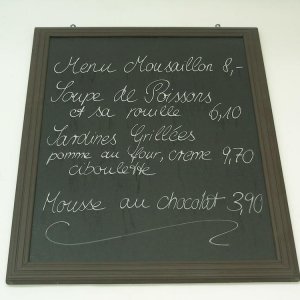 Menu Moussaillon 8,-
Soupe de Poissons
et sa rouille 6,10
Sardines Grillées
pomme au four, creme 9,70
ciboulette
Mousse au chocolat 3,90